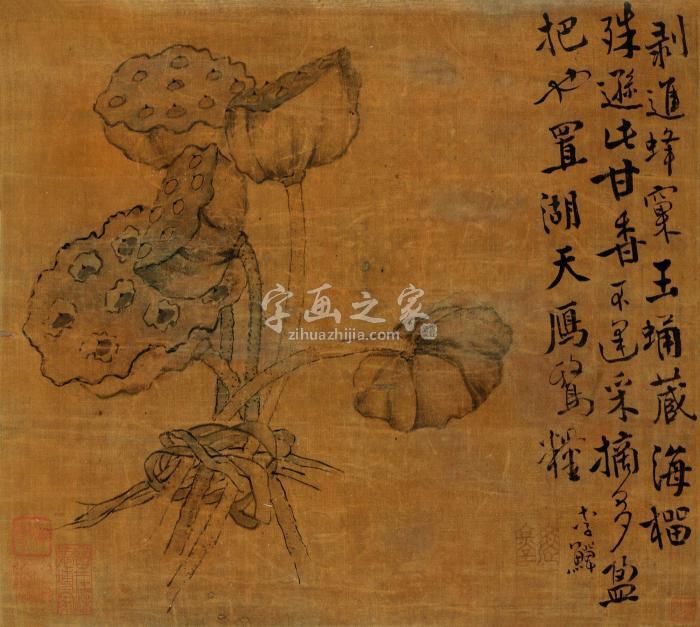 剥蜂窠玉蛹藏海榴
殊遜此甘香不遑采摘多盈
把也置湖天鴈鶩糧
李鱓
字画之家
zihuazhijia.com